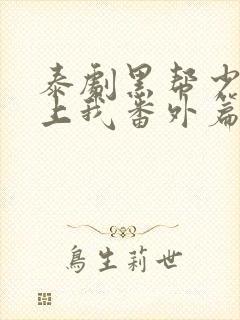 泰劇黑帮少
上我番外篇
鳥生莉世